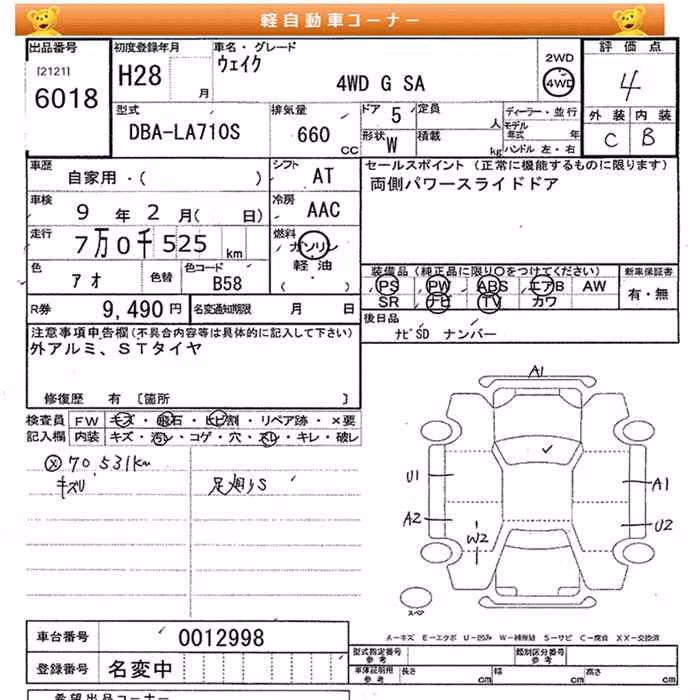 軽自動車コーナー
出品番号 初度登録年月 車名・グレード 評価点
[2121] 6018 H28 月 ウェイク 4WD G SA 2WD 4WD 4
型式 排気量 ドア 5 定員 人 ディーラー・並行 外装 内装
DBA-LA710S 660 CC 形状 W 積載 kg モデル年式 年 ハンドル 左・右 C B
車歴 自家用・( ) シフト AT セールスポイント (正常に機能するものに限ります)
車検 9年 2月( 日) 冷房 AAC 両側パワースライドドア
走行 7万0千525 km 燃料 ガソリン 軽油 ( )
色 アオ 色替 色コード B58 装備品 (純正品に限り○をつけてください) 新車保証書
PS PW ABS エアB AW 有・無
R券 9,490円 名変通知期限 月 日 SR ナビ TV カワ
注意事項申告欄(不具合内容等は具体的に記入して下さい) 後日品
外アルミ、STタイヤ ナビSD ナンバー
修復歴 有 [箇所 ]
検査員 FW キズ・飛石・ヒビ割・リペア跡・×要
記入欄 内装 キズ・汚レ・コゲ・穴・スレ・キレ・破レ
x 70,531km
キズU 足廻りS
A1
U1 A1
A2 U2
W2
スペア
A-キズ E-エクボ U-凹み W-補修跡 S-サビ C-腐食 XX-交換済
車台番号 0012998
型式指定番号 参考 類別区分番号 参考
登録番号 名変中 車庫証明記載 参考 長さ cm 幅 cm 高さ cm
希望出品コーナー